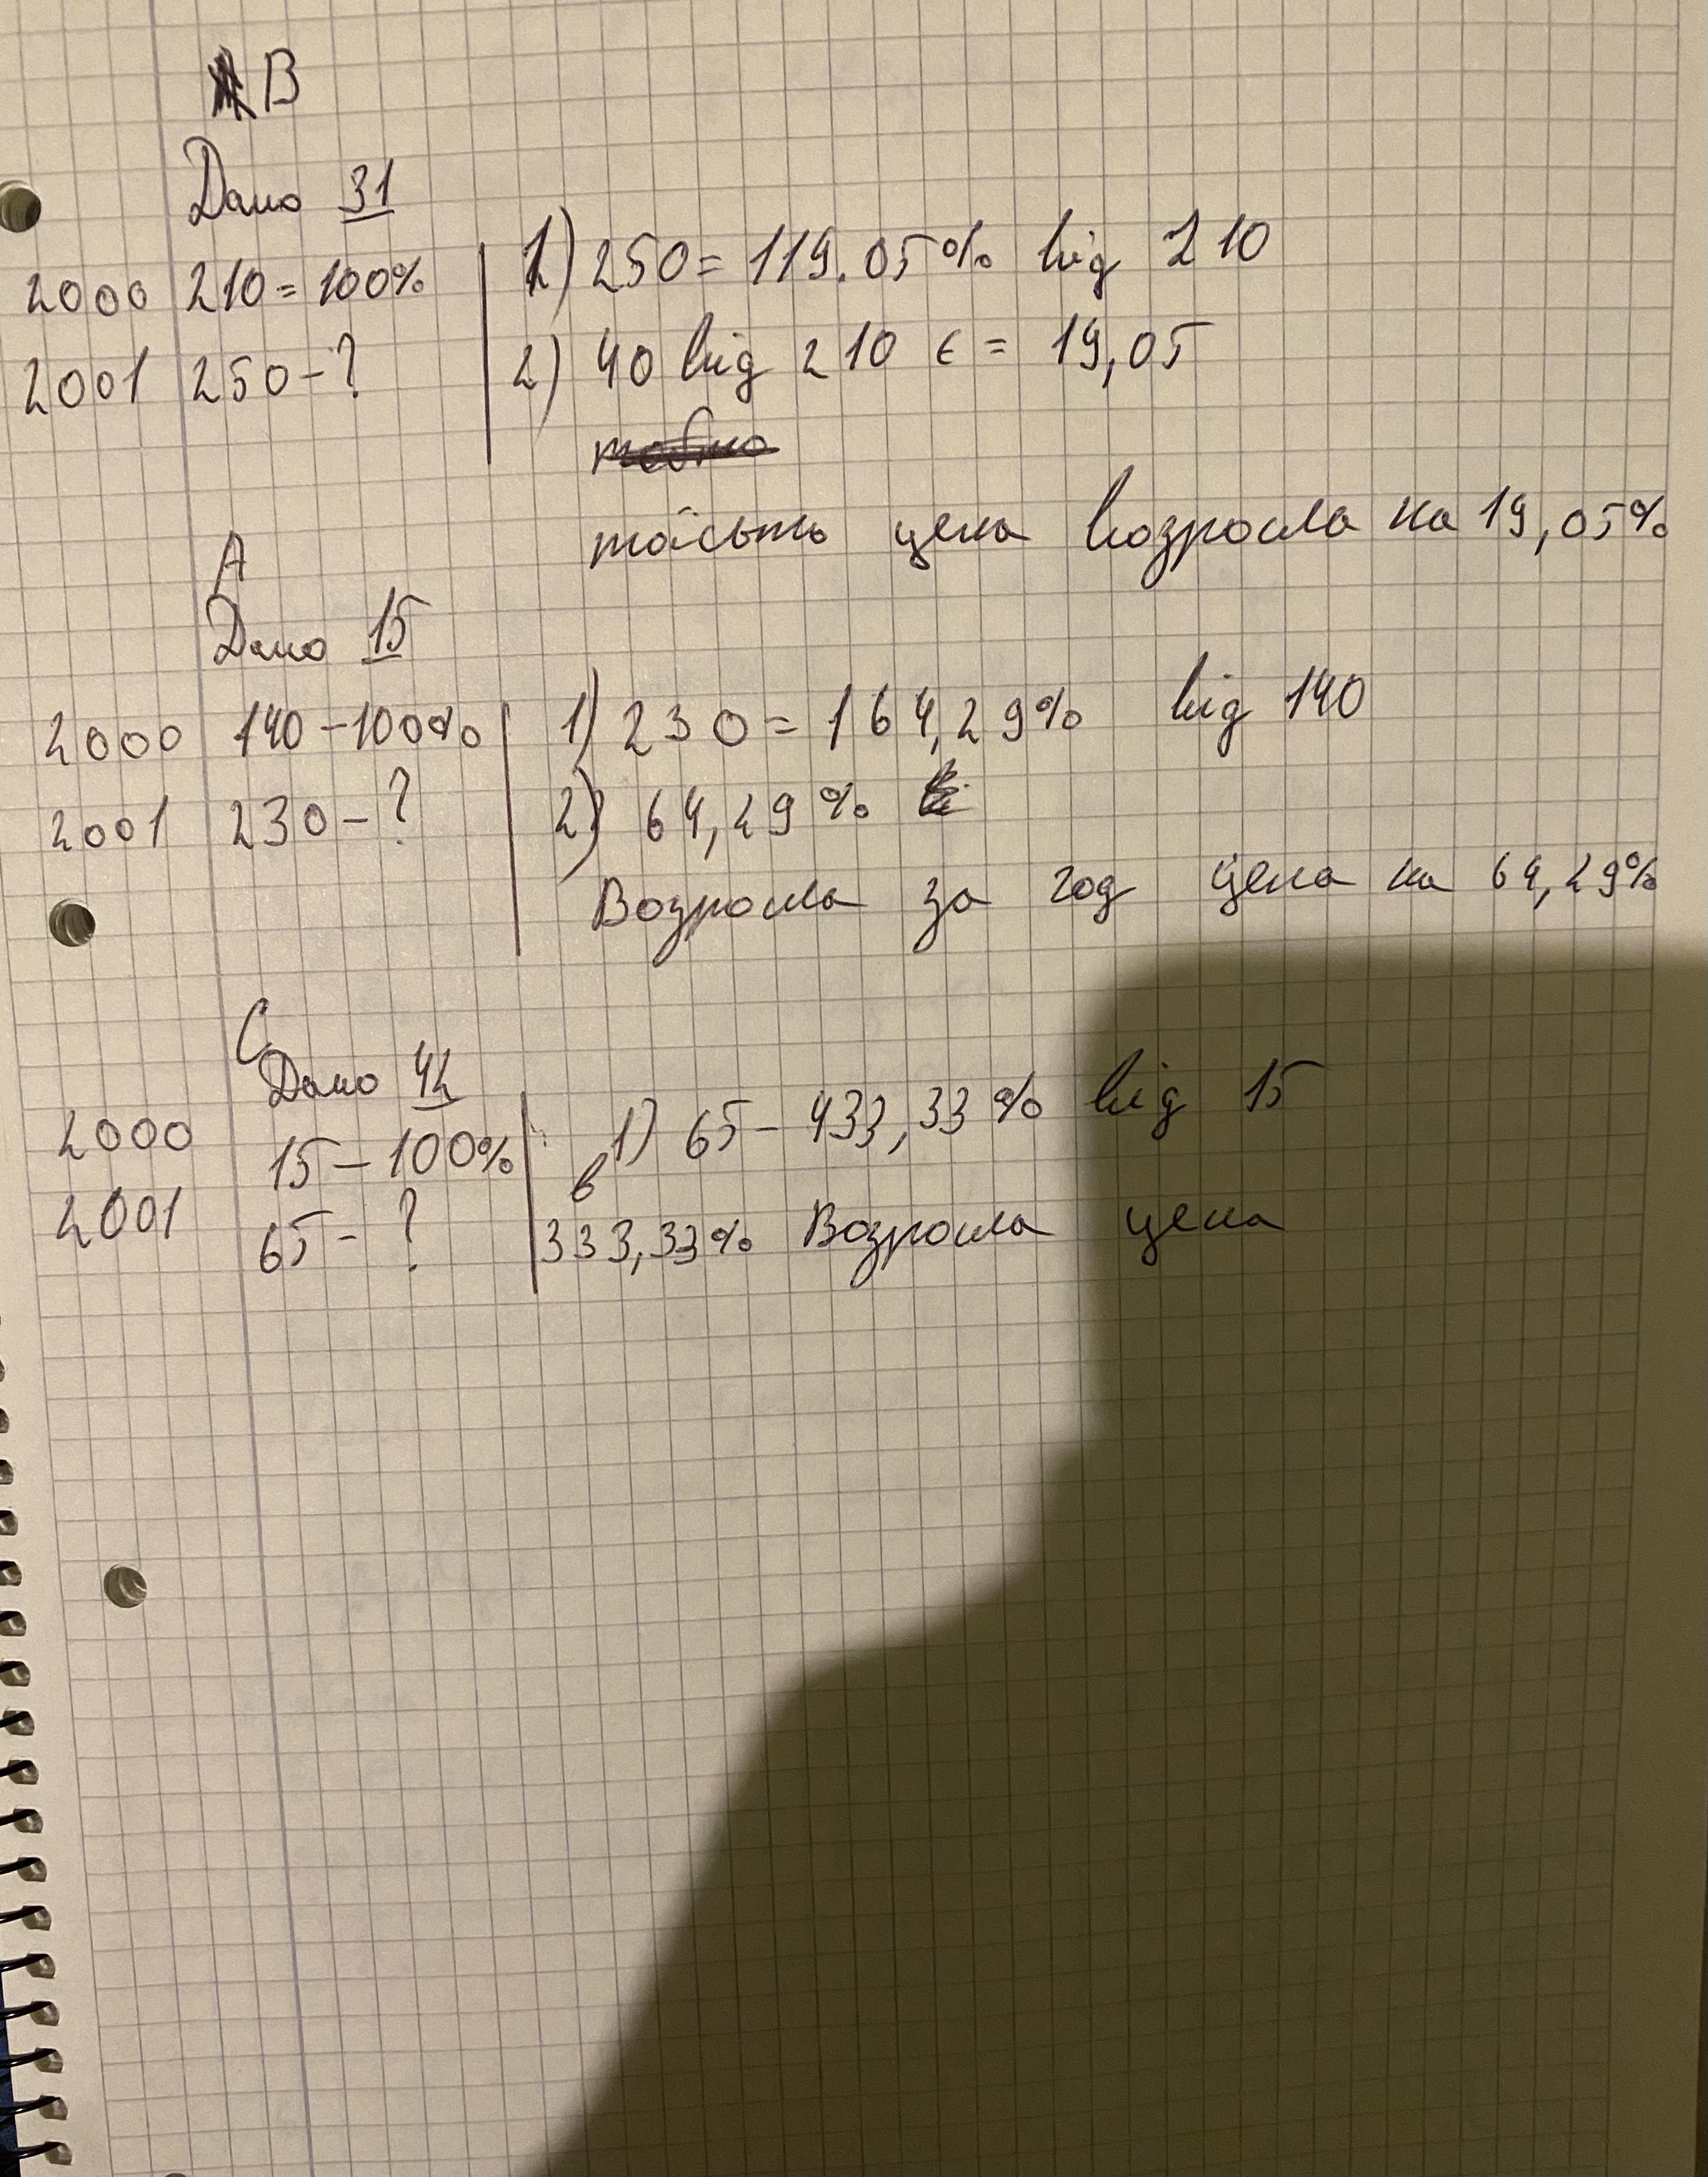 В
Дано 31
2000 210 = 100%
2001 250 - ?
1) 250 = 119.05% від 210
2) 40 від 210 є = 19,05
тоїсьть цена возросла на 19,05%
А
Дано 15
2000 140 - 100%
2001 230 - ?
1) 230 = 164,29% від 140
2) 64,29%
Возросла за год цена на 64,29%
С
Дано 42
2000 15 - 100%
2001 65 - ?
1) 65 - 433,33% від 15
в
333,33% Возросла цена